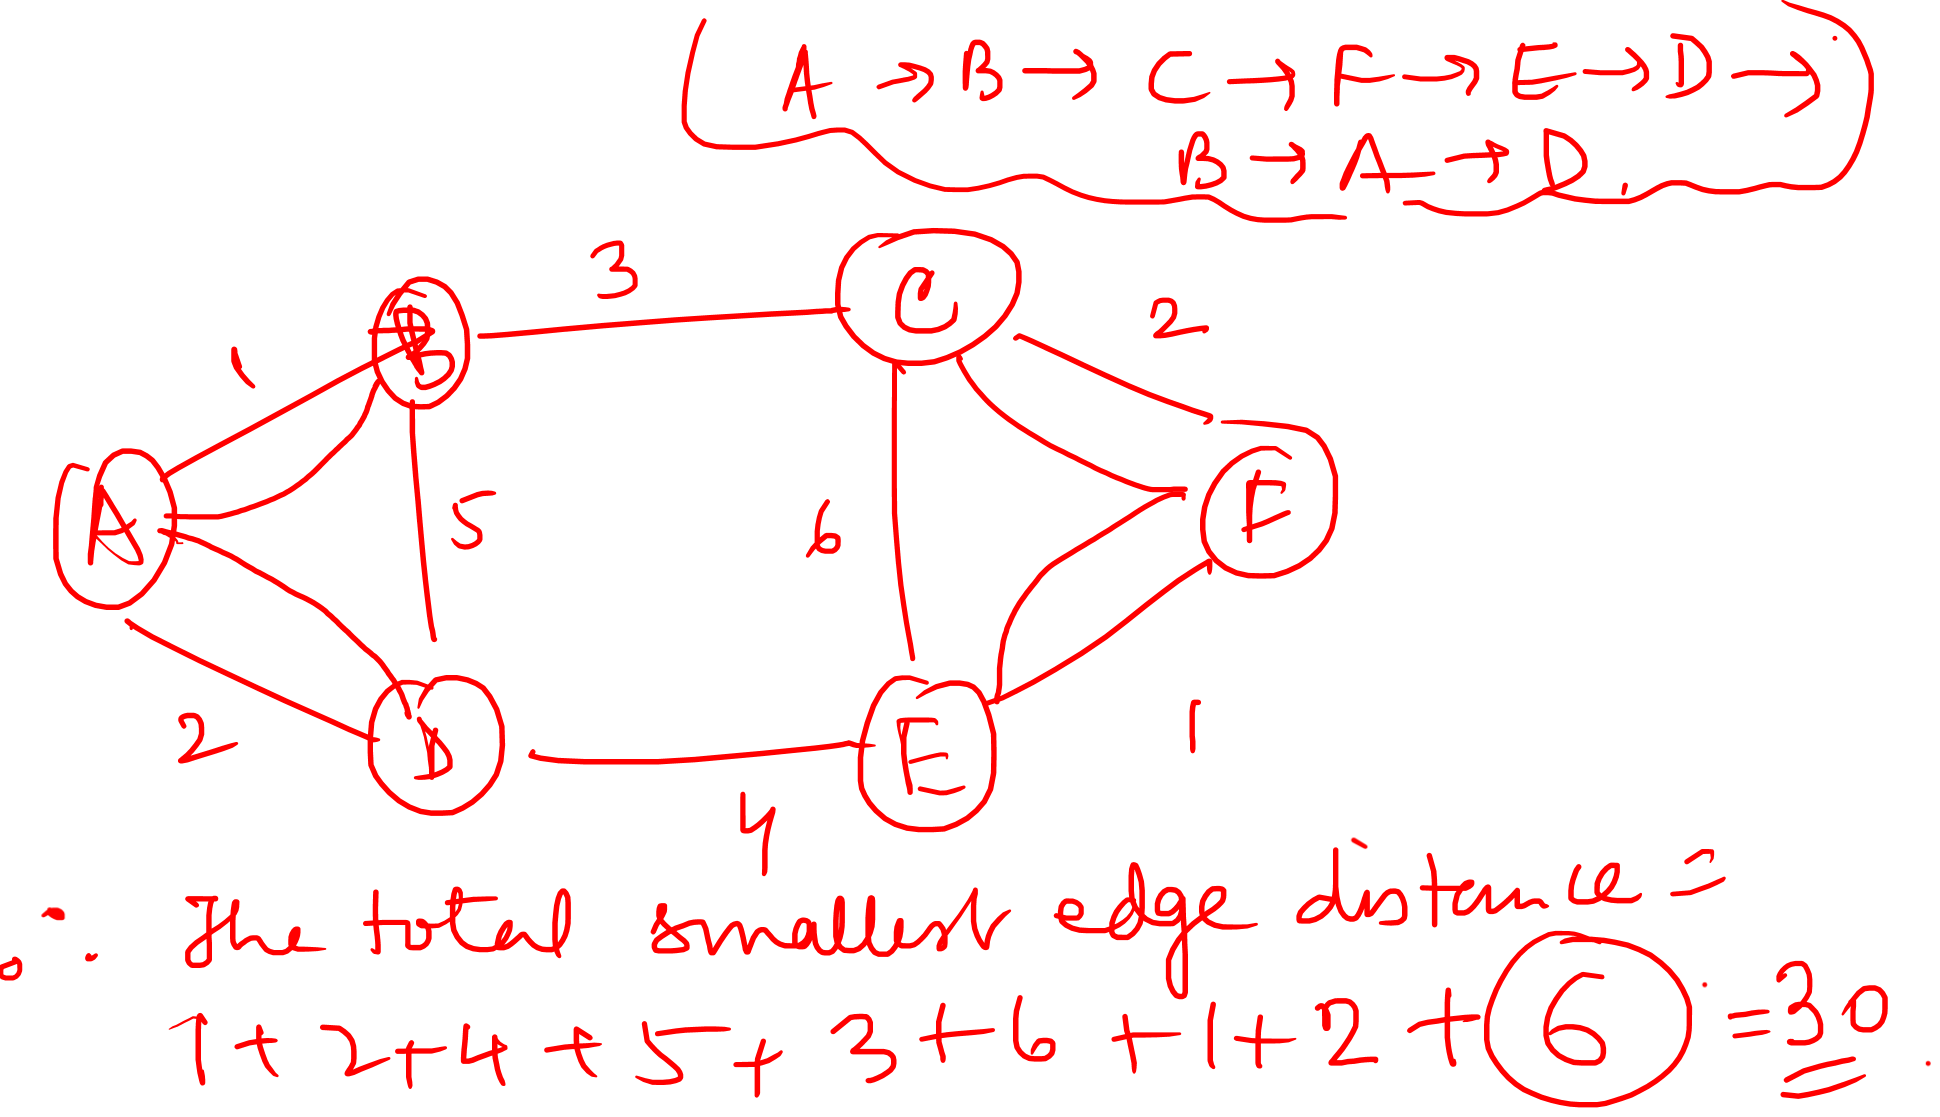 A → B → C → F → E → D →
B → A → D.
3
C
2
B
1
A
5
6
F
2
D
E
1
4
∴ The total smallest edge distance =
1 + 2 + 4 + 5 + 3 + 6 + 1 + 2 + 6 = 30.